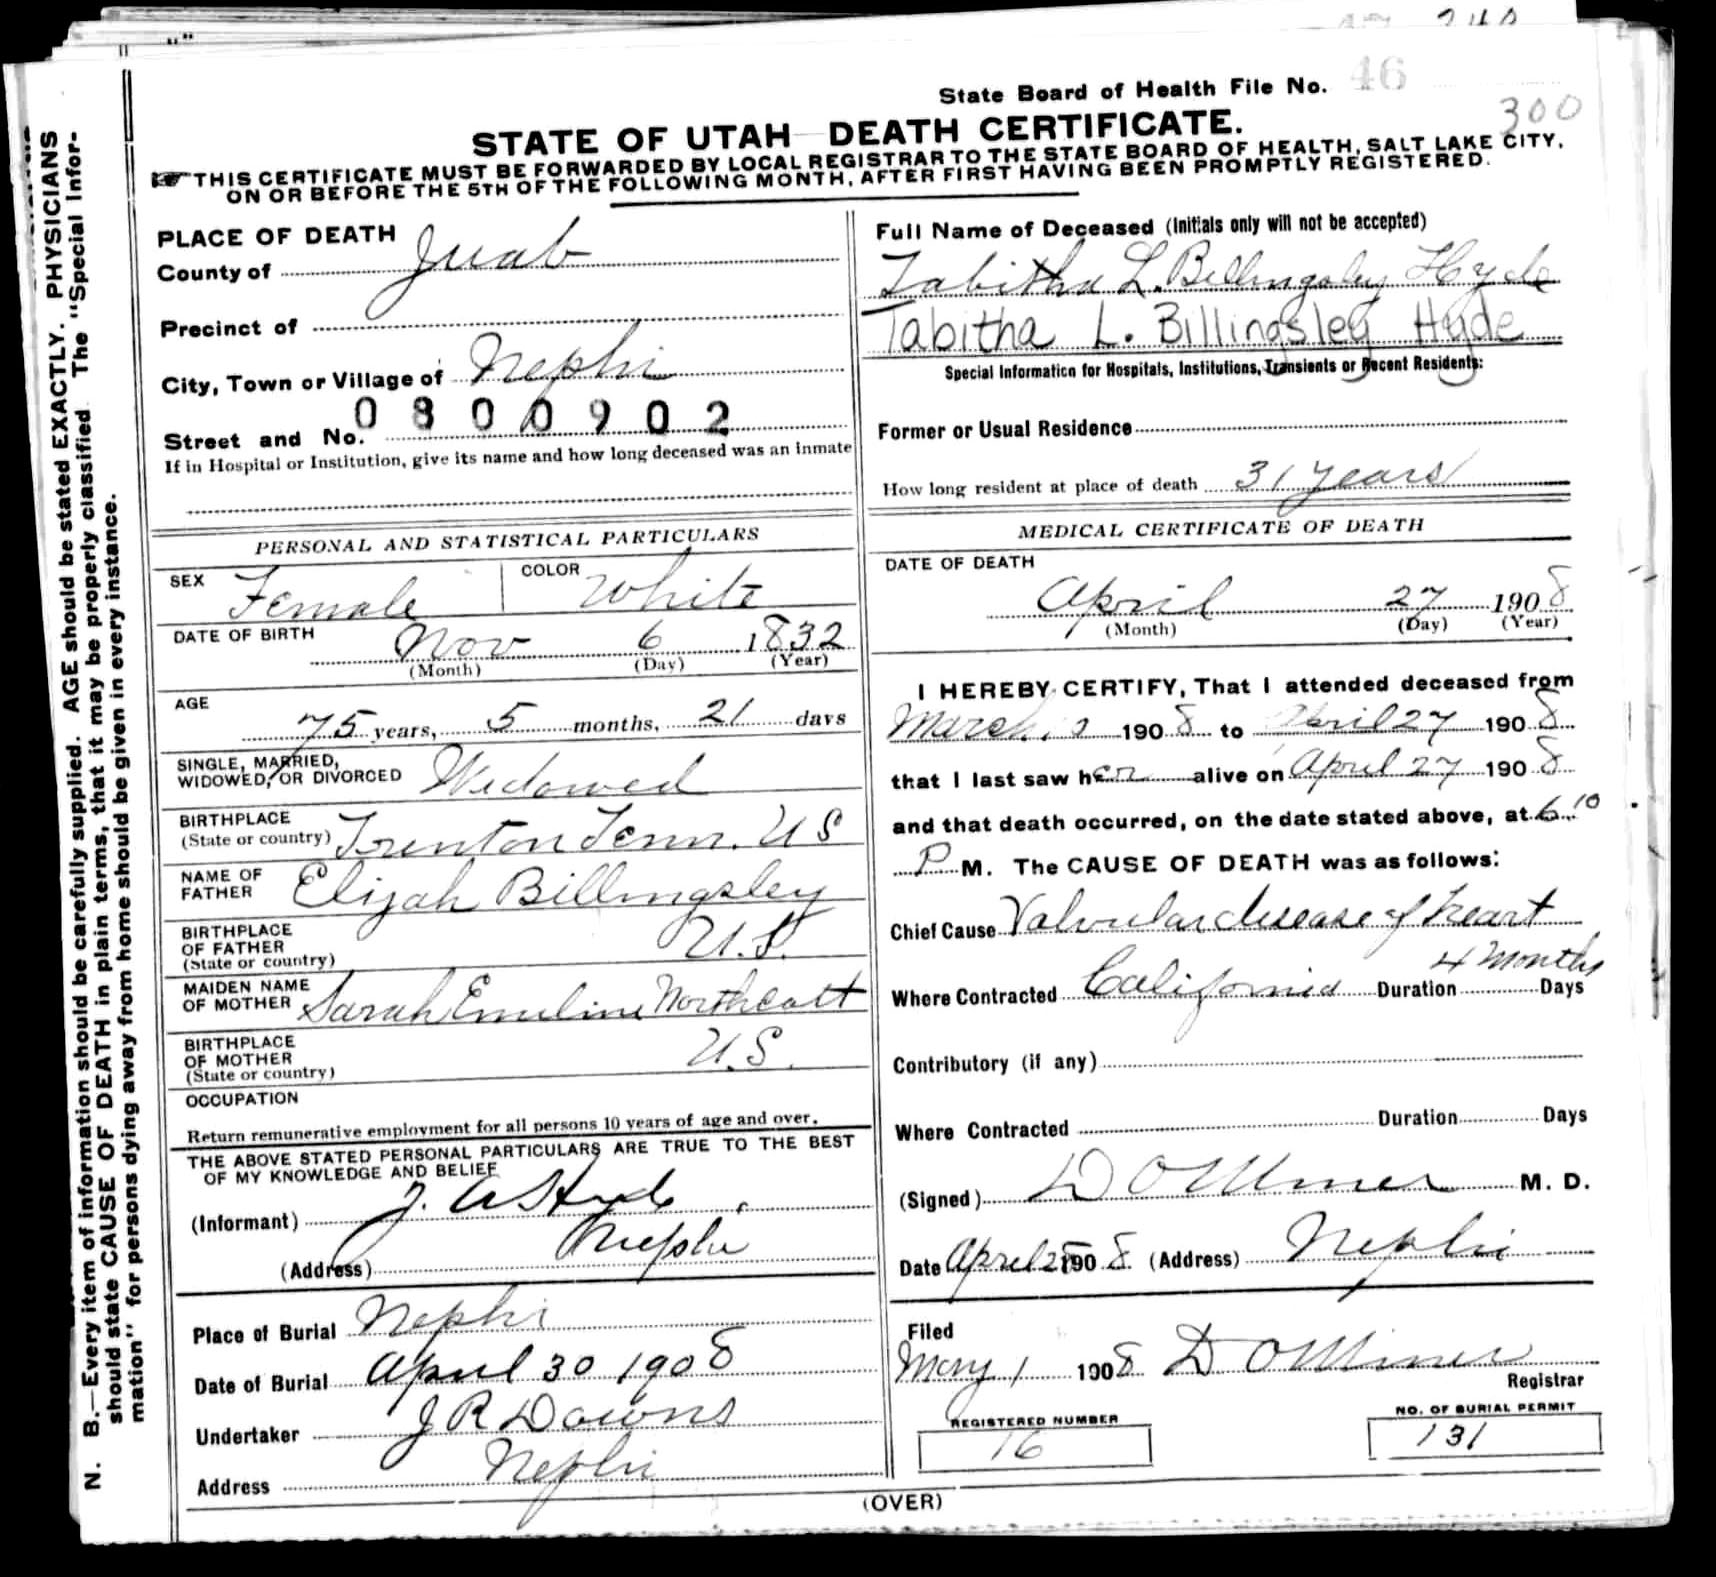 State Board of Health File No. 46
300
STATE OF UTAH—DEATH CERTIFICATE.
THIS CERTIFICATE MUST BE FORWARDED BY LOCAL REGISTRAR TO THE STATE BOARD OF HEALTH, SALT LAKE CITY,
ON OR BEFORE THE 5TH OF THE FOLLOWING MONTH, AFTER FIRST HAVING BEEN PROMPTLY REGISTERED.
N. B.—Every item of information should be carefully supplied. AGE should be stated EXACTLY. PHYSICIANS
should state CAUSE OF DEATH in plain terms, that it may be properly classified The "Special Infor-
mation" for persons dying away from home should be given in every instance.
PLACE OF DEATH
County of Juab
Precinct of
City, Town or Village of Nephi
0800902
Street and No.
If in Hospital or Institution, give its name and how long deceased was an inmate
PERSONAL AND STATISTICAL PARTICULARS
SEX Female COLOR White
DATE OF BIRTH Nov 6 1832
(Month) (Day) (Year)
AGE
75 years, 5 months, 21 days
SINGLE, MARRIED,
WIDOWED, OR DIVORCED Widowed
BIRTHPLACE
(State or country) Trenton Tenn. U S
NAME OF
FATHER Elijah Billingsley
BIRTHPLACE
OF FATHER
(State or country) U.S.
MAIDEN NAME
OF MOTHER Sarah Emeline Northcott
BIRTHPLACE
OF MOTHER
(State or country) U.S.
OCCUPATION
Return remunerative employment for all persons 10 years of age and over.
THE ABOVE STATED PERSONAL PARTICULARS ARE TRUE TO THE BEST
OF MY KNOWLEDGE AND BELIEF
(Informant) J. A Hyde
(Address) Nephi
Place of Burial Nephi
Date of Burial April 30 1908
Undertaker J R Downs
Address Nephi
Full Name of Deceased (Initials only will not be accepted)
Tabitha L. Billingsley Hyde
Tabitha L. Billingsley Hyde
Special Information for Hospitals, Institutions, Transients or Recent Residents:
Former or Usual Residence
How long resident at place of death 31 years
MEDICAL CERTIFICATE OF DEATH
DATE OF DEATH
April 27 1908
(Month) (Day) (Year)
I HEREBY CERTIFY, That I attended deceased from
March 1908 to April 27 1908
that I last saw her alive on April 27 1908
and that death occurred, on the date stated above, at 6.10
P M. The CAUSE OF DEATH was as follows:
Chief Cause Valvular disease of heart
4 Months
Where Contracted California Duration Days
Contributory (if any)
Where Contracted Duration Days
(Signed) D O Miner M. D.
Date April 28 1908 (Address) Nephi
Filed
May 1 1908 D O Miner
Registrar
REGISTERED NUMBER
16
NO. OF BURIAL PERMIT
131
(OVER)